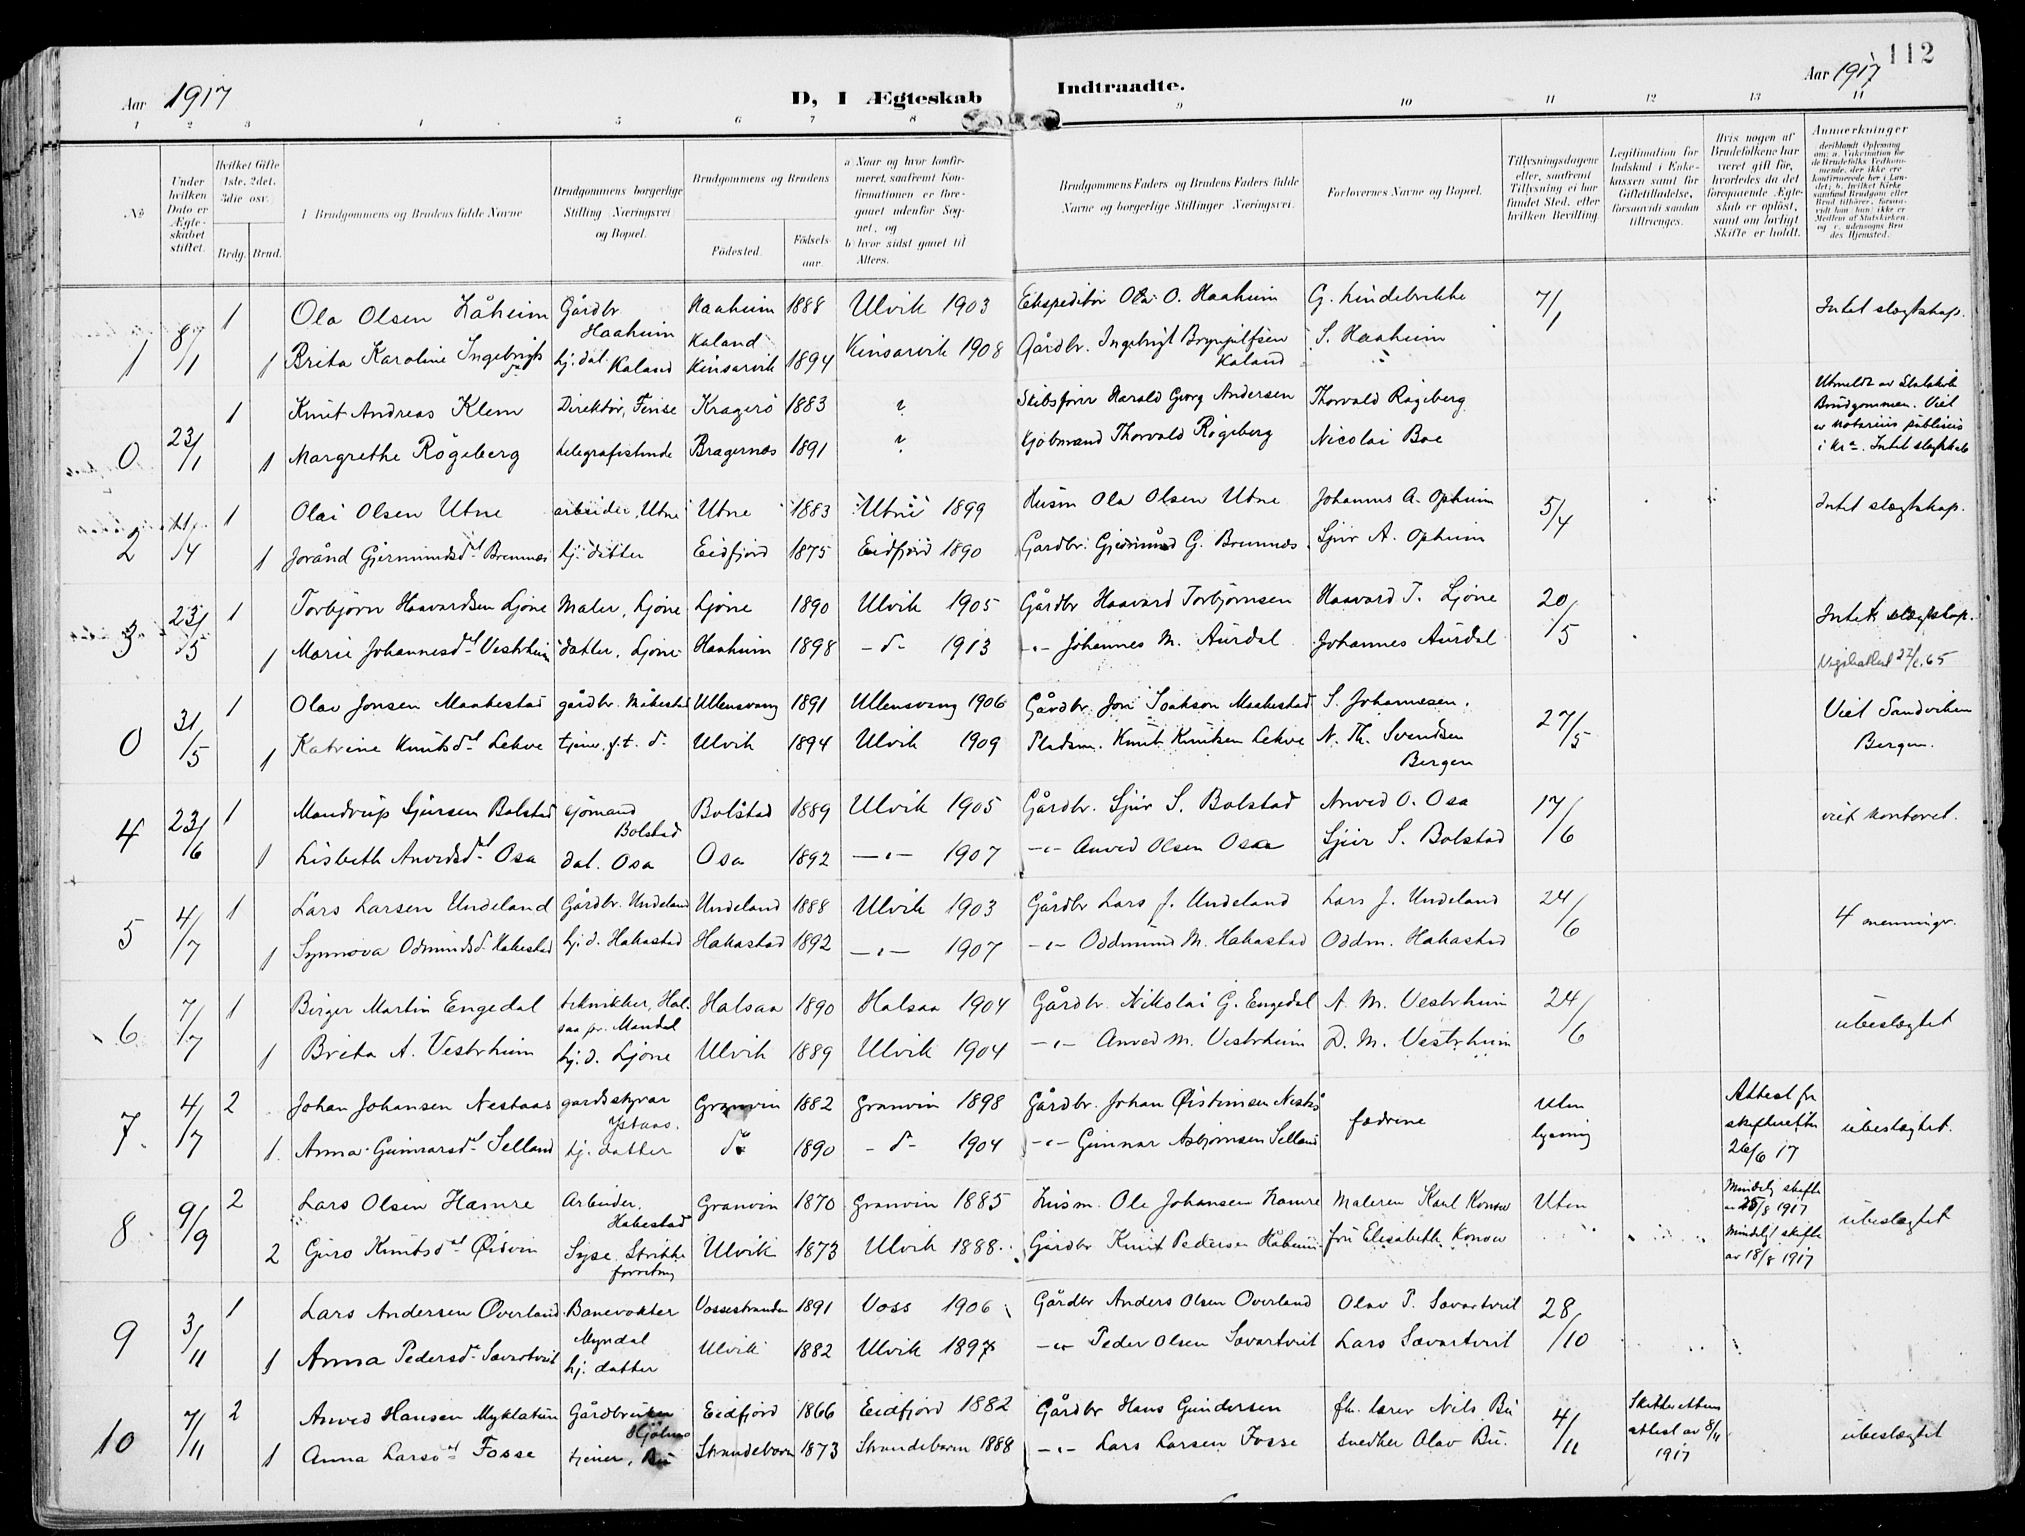 112
Aar 1917
D, I Ægteskab Indtraadte.
Aar 1917
1 2 3 4 5 6 7 8 9 10 11 12 13 14
No
Under hvilken Dato er Ægteskabet stiftet.
Hvilket Gifte 1ste, 2det, 3die osv.
Brdg. Brud.
Brudgommens og Brudens fulde Navne
Brudgommens borgerlige Stilling Næringsvei og Bopæl.
Brudgommens og Brudens
Fødested. Fødselsaar.
a Naar og hvor konfirmeret, saafremt Konfirmationen er foregaaet udenfor Sognet, og
b hvor sidst gaaet til Alters.
Brudgommens Faders og Brudens Faders fulde Navne og borgerlige Stillinger Næringsvei.
Forlovernes Navne og Bopæl.
Tillysningsdagene eller, saafremt Tillysning ei har fundet Sted, efter hvilken Bevilling
Legitimation for Indskud i Enkekassen samt for Giftetilladelse, forsaavidt saadan tiltrænges.
Hvis nogen af Brudefolkene har været gift før, hvorledes da det foregaaende Ægteskab er opløst, samt om lovligt Skifte er holdt.
Anmerkninger
deriblandt Oplysning om: a. Vakcination for de Brudefolks Vedkommende, der ikke ere konfirmerede her i Landet; b. hvilket Kirkesamfund Brudgom eller Brud tilhører, forsaavidt han (hun) ikke er Medlem af Statskirken, og c. udensogns Brudes Hjemsted.
1 8/1 1 Ola Olsen Håheim Gårdbr Haaheim Haaheim 1888 Ulvik 1903 Ekspeditør Ola O. Haaheim G. Lindebrekke 7/1 Intet slægtskap.
1 Brita Karoline Ingebrigtsd. hj. dat. Kaland Kaland Kinsarvik 1894 Kinsarvik 1908 Gårdbr. Ingebrigt Brynjulfsen Kaland S. Haaheim
0 23/1 1 Knut Andreas Klem Direktør, Finse Kragerö 1883 ? Skibsfører Harald Georg Andersen Thorvald Rögeberg Utmeldt av Statskirk Brudgommen. Viet av notarius publicus i Kra. Intet slægtskab
1 Margrethe Rögeberg telegrafistinde Bragernæs 1891 ? Kjöbmand Thorvald Rögeberg Nicolai Boe
2 /4 1 Olai Olsen Utne arbeider, Utne Utne 1883 Utne 1899 Husm Ola Olsen Utne Johannes A. Opheim 5/4 Intet slægtskap.
1 Jorånd Gjermundsd. Bremnes hj. datter Eidfjord 1875 Eidfjord 1890 Gardbr. Gjermund G. Bremnes Sjur A. Opheim
3 23/5 1 Torbjørn Haavardsen Ljone Maler, Ljone Ljone 1890 Ulvik 1905 Gårdbr Haavard Torbjørnsen Haavard T. Ljone 20/5 Intet slægtskap.
1 Marie Johannesd. Vestrheim datter, Ljone Haaheim 1898 - do - 1913 -"- Johannes M. Aurdal Johannes Aurdal
0 31/5 1 Olav Jonsen Maakestad gårdbr. Måkestad Ullensvang 1891 Ullensvang 1906 Gårdbr. Jon Isakson Maakestad S. Johannesen. 27/5 Viet Sandviken Bergen.
1 Katrine Knutsd. Lekve tjener, f.t. do. Ulvik 1894 Ulvik 1909 Pladsm. Knut Knutsen Lekve N. Th. Svendsen Bergen
4 23/6 1 Mandrup Sjursen Bolstad sjömand Bolstad Bolstad 1889 Ulvik 1905 Gårdbr. Sjur S. Bolstad Anved O. Osa 17/6 viet kontoret.
1 Lisbeth Anvedsd. Osa dat. Osa Osa 1892 -"- 1907 -"- Anved Olsen Osa Sjur S. Bolstad
5 4/7 1 Lars Larsen Undeland Gårdbr. Undeland Undeland 1888 Ulvik 1903 Gårdbr Lars J. Undeland Lars J. Undeland 24/6 4 menninger.
1 Synnova Odmundsd. Hakestad hj. d. Hakastad Hakastad 1892 -"- 1907 -"- Oddmund M. Hakastad Oddm. Hakastad
6 7/7 1 Birger Martin Engedal tekniker, Halsaa pr. Mandal Halsaa 1890 Halsaa 1904 Gårdbr. Nikolai G. Engedal A. M. Vestrheim 24/6 ubeslægtet
1 Brita A. Vestrheim hj. d. Ljone Ulvik 1889 Ulvik 1904 -"- Anved M. Vestrheim D. M. Vestrheim
7. 4/7 2 Johan Johansen Nestaas gardsstyrar Ystaas. Granvin 1882 Granvin 1898 Gårdbr. Johan Øistensen Nestås fædrene Uten lysning Attest fra skifteretten 26/6 17 ubeslegtet.
1. Anna Gunnarsd. Selland hj. datter do 1890 - do - 1904 -"- Gunnar Asbjørnsen Selland
8 9/9 2 Lars Olsen Hamre Arbeider, Hakestad Granvin 1870 Granvin 1885 Husm. Ole Johansen Hamre Maleren Karl Konow Uten Mindelig skifte av 25/8 1917 ubeslægtet
2 Guro Knutsd. Øidvin Syge. Strikkeforretng Ulvik 1873 Ulvik 1888. Gårdbr Knut Pedersen Håheim fru Elisabeth Konow Mindeligt skifte av 18/8 1917
9 3/11 1 Lars Andersen Øverland Banevokter Myrdal Vossestranden 1891 Voss 1906 Gårdbr Anders Olsen Øverland Olav P. Sævartveit 28/10
1 Anna Pedersd. Sævartveit hj. datter Ulvik 1882 Ulvik 1897 -"- Peder Olsen Sævartveit Lars Sævartveit
10 7/11 2 Anved Hansen Myklatun Gårdbruker Hjölmo Eidfjord 1866 Eidfjord 1882 Gårdbr Hans Gundersen fh. lærer Nils Bu 4/11 Skifterettens attest av 8/11 1917 ubeslægtet
1 Anna Larsd. Fosse tjener, Bu Strandebarm 1873 Strandebarm 1888 -"- Lars Larsen Fosse snedker Olav Bu.